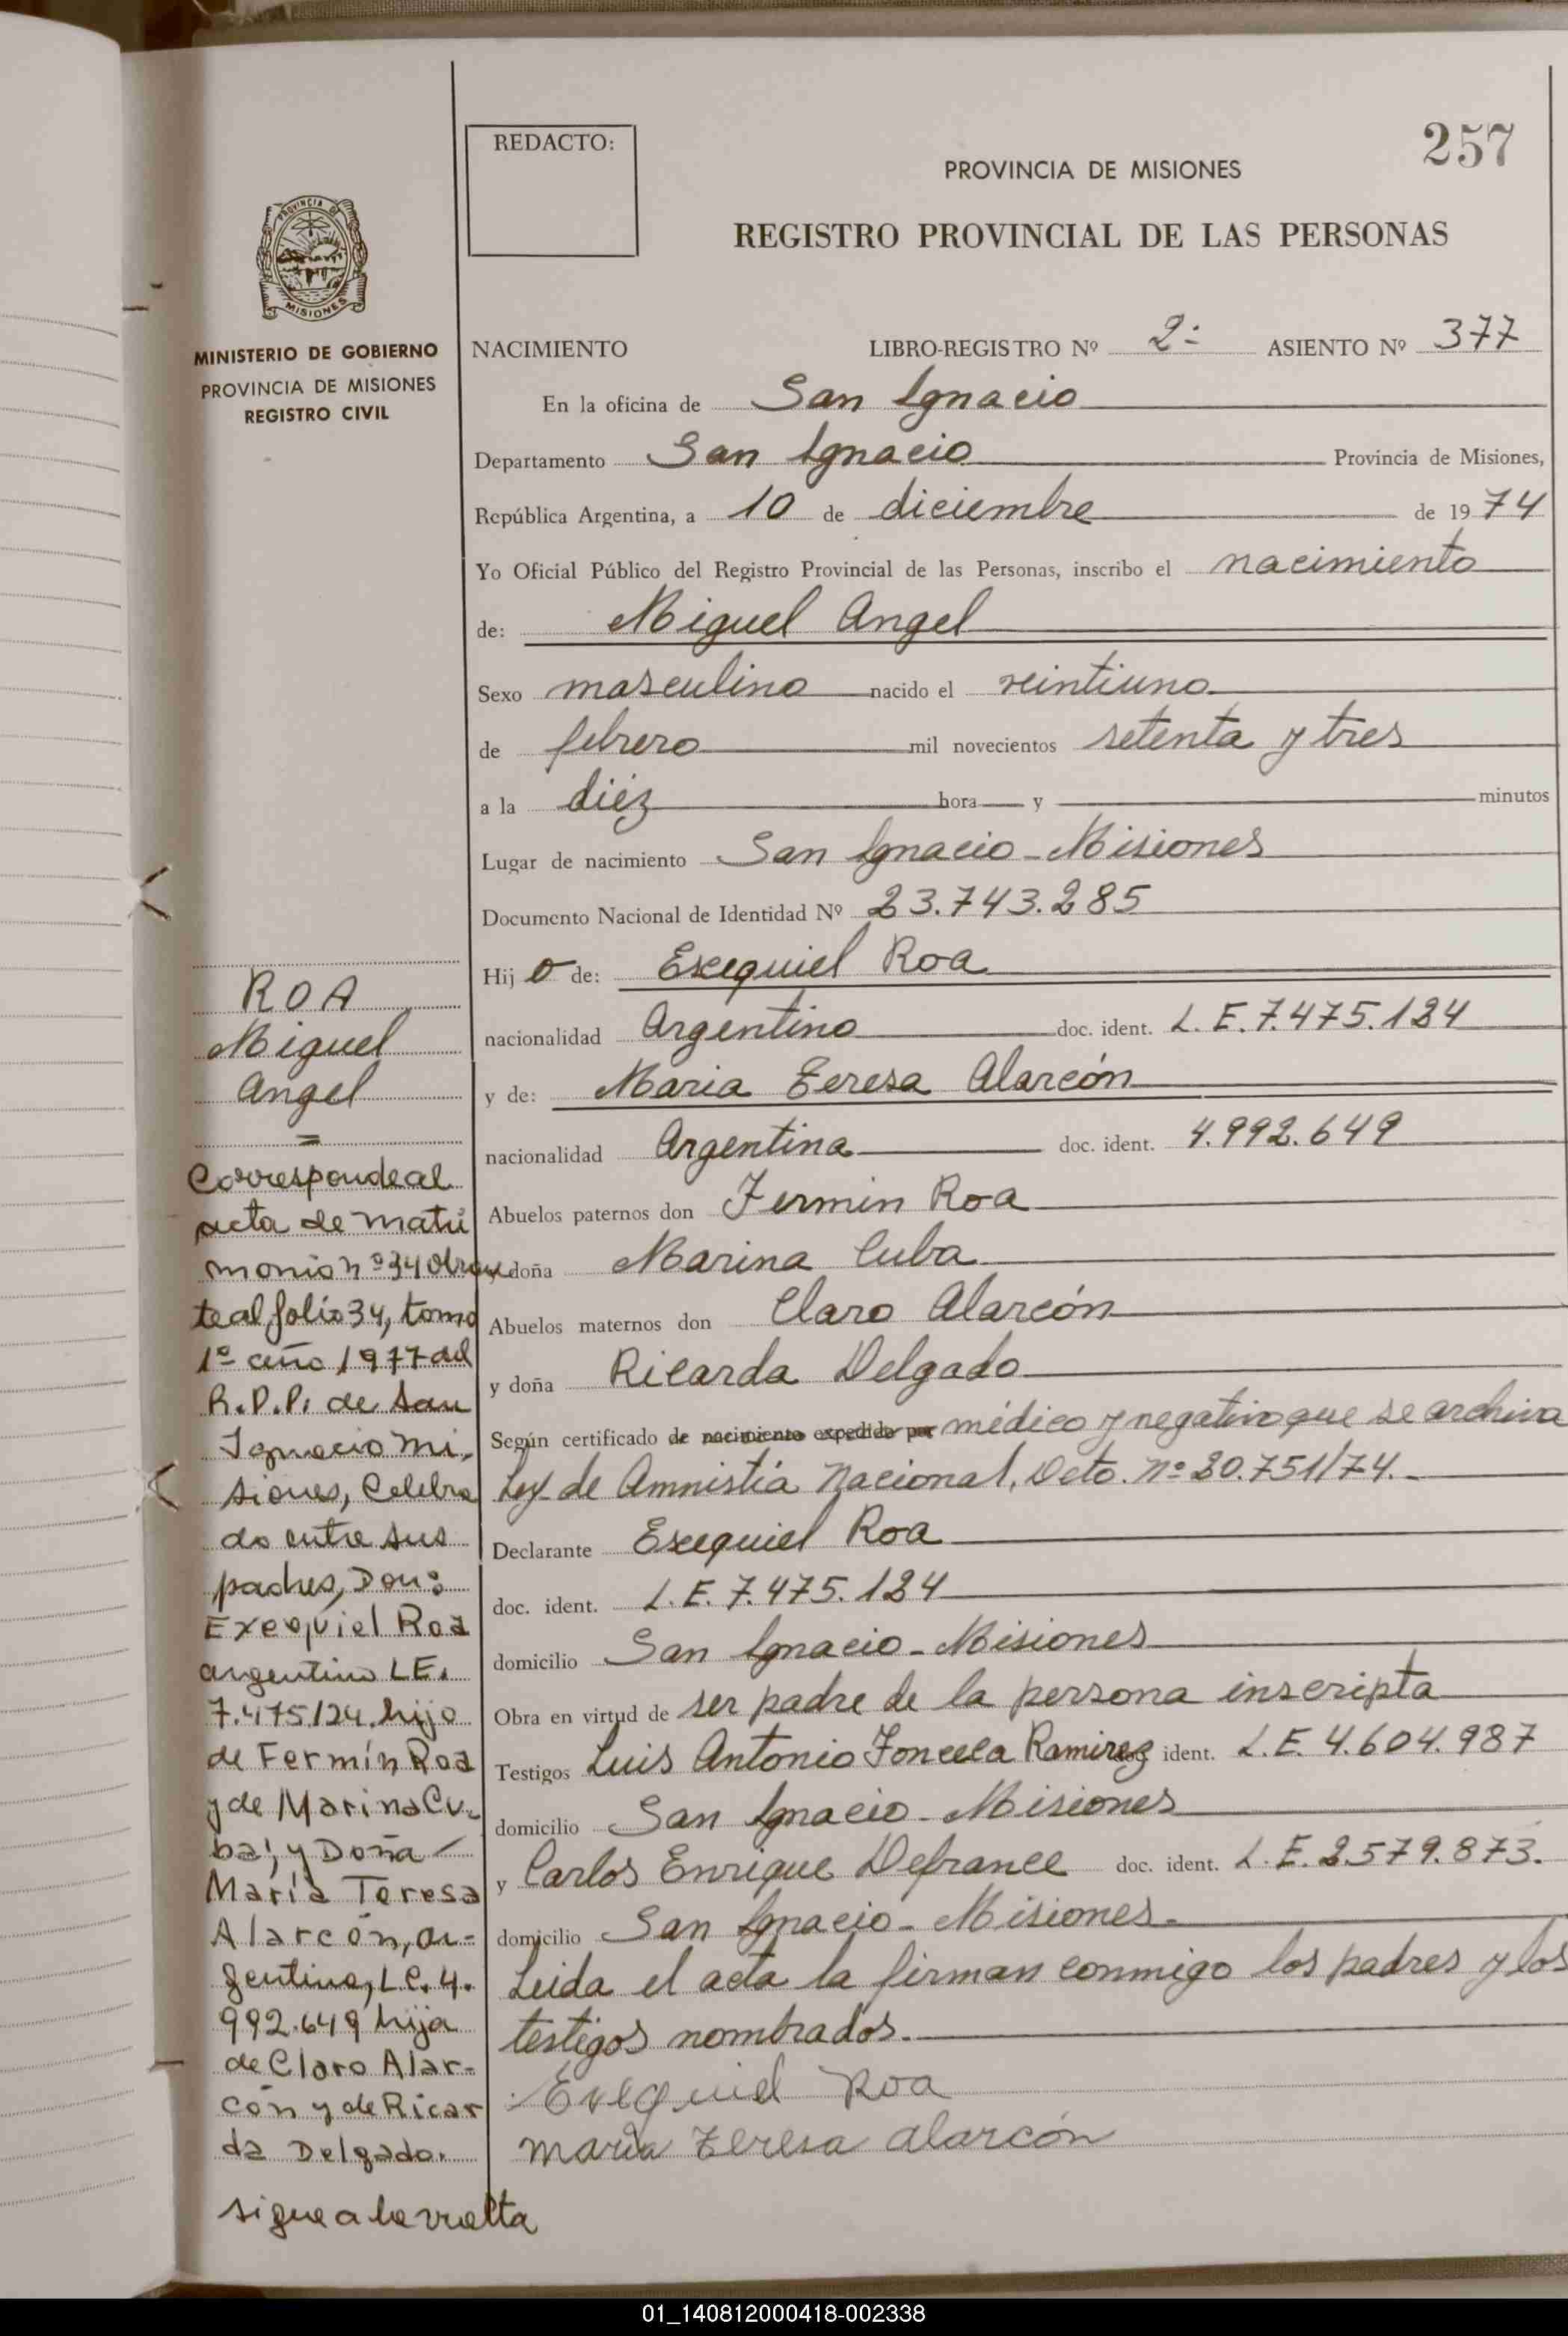 257
REDACTO:
PROVINCIA DE MISIONES
REGISTRO PROVINCIAL DE LAS PERSONAS
PROVINCIA DE
MISIONES
MINISTERIO DE GOBIERNO
PROVINCIA DE MISIONES
REGISTRO CIVIL
NACIMIENTO LIBRO-REGISTRO Nº 2º ASIENTO Nº 377
En la oficina de San Ignacio
Departamento San Ignacio Provincia de Misiones,
República Argentina, a 10 de diciembre de 1974
Yo Oficial Público del Registro Provincial de las Personas, inscribo el nacimiento
de: Miguel Angel
Sexo masculino nacido el veintiuno
de febrero mil novecientos setenta y tres
a la diéz hora y minutos
Lugar de nacimiento San Ignacio - Misiones
Documento Nacional de Identidad Nº 23.743.285
Hijo de: Exequiel Roa
nacionalidad Argentino doc. ident. L.E. 7.475.124
y de: Maria Teresa Alarcón
nacionalidad Argentina doc. ident. 4.992.649
Abuelos paternos don Fermin Roa
y doña Marina Cuba
Abuelos maternos don Claro Alarcón
y doña Ricarda Delgado
Según certificado de nacimiento expedido por médico y negativo que se archiva
Ley de Amnistía Nacional, Dcto. Nº 20.751/74.-
Declarante Exequiel Roa
doc. ident. L.E. 7.475.124
domicilio San Ignacio - Misiones
Obra en virtud de ser padre de la persona inscripta
Testigos Luis Antonio Fonceca Ramirez doc. ident. L.E. 4.604.987
domicilio San Ignacio - Misiones
y Carlos Enrique Defrance doc. ident. L.E. 2.579.873.
domicilio San Ignacio - Misiones.
Leida el acta la firman conmigo los padres y los
testigos nombrados.
Exequiel Roa
maria Teresa alarcón
ROA
Miguel
Angel
=
Corresponde al
acta de matri
monio nº 34 obran
te al folio 34, tomo
1º año 1977 del
R.P.P. de San
Ignacio Mi,
siones, Celebra
do entre sus
padres, Don:
Exequiel Roa
argentino LE.
7.475.124. hijo
de Fermín Roa
y de Marina Cu-
ba; y Doña
María Teresa
Alarcón, ar-
gentina, L.C. 4.
992.649 hija
de Claro Alar-
cón y de Ricar
da Delgado.
sigue a la vuelta
01_140812000418-002338